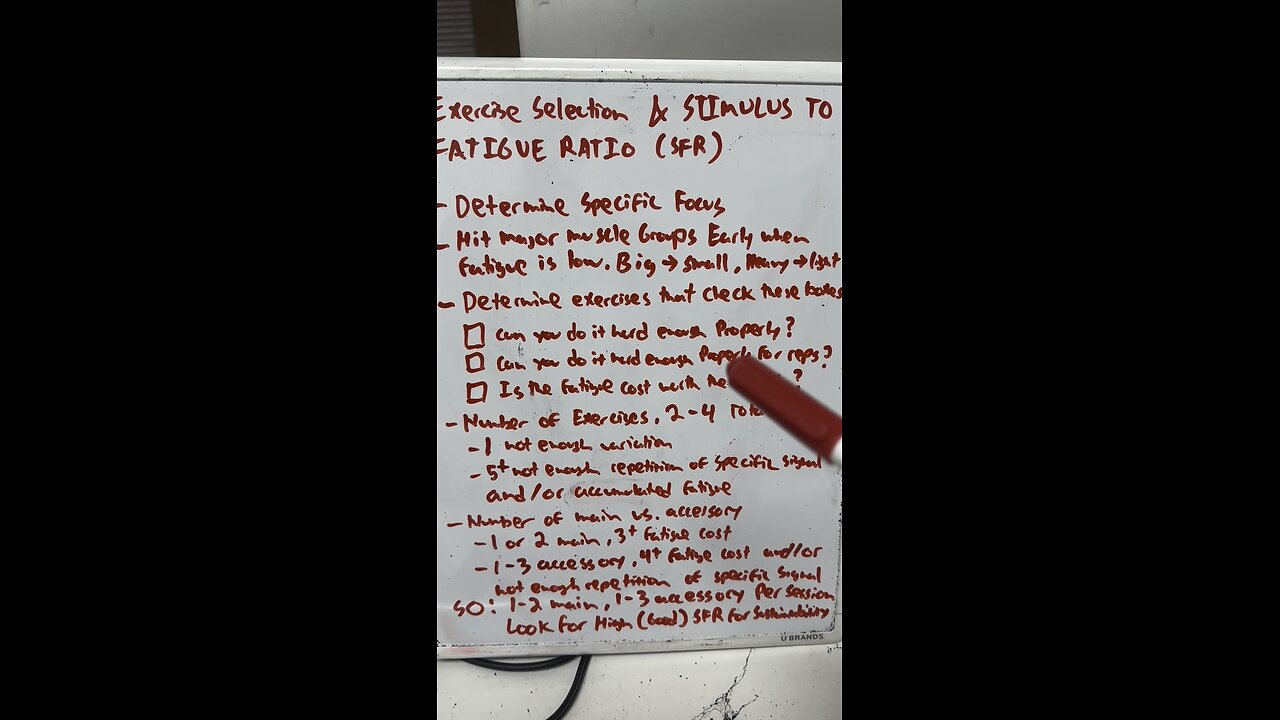 Exercise Selection & STIMULUS TO
FATIGUE RATIO (SFR)
- Determine Specific Focus
- Hit major muscle Groups Early when
Fatigue is low. Big → small, Heavy → light
- Determine exercises that check these boxes
Can you do it hard enough Properly?
Can you do it hard enough Properly For reps?
Is the Fatigue cost worth the ?
- Number of Exercises, 2-4
- 1 not enough variation
- 5+ not enough repetition of specific signal
and/or accumulated fatigue
- Number of main vs. accessory
- 1 or 2 main, 3+ Fatigue cost
- 1-3 accessory, 4+ Fatigue cost and/or
not enough repetition of specific signal
SO: 1-2 main, 1-3 accessory Per Session
Look For High (Good) SFR For Sustainability
U BRANDS